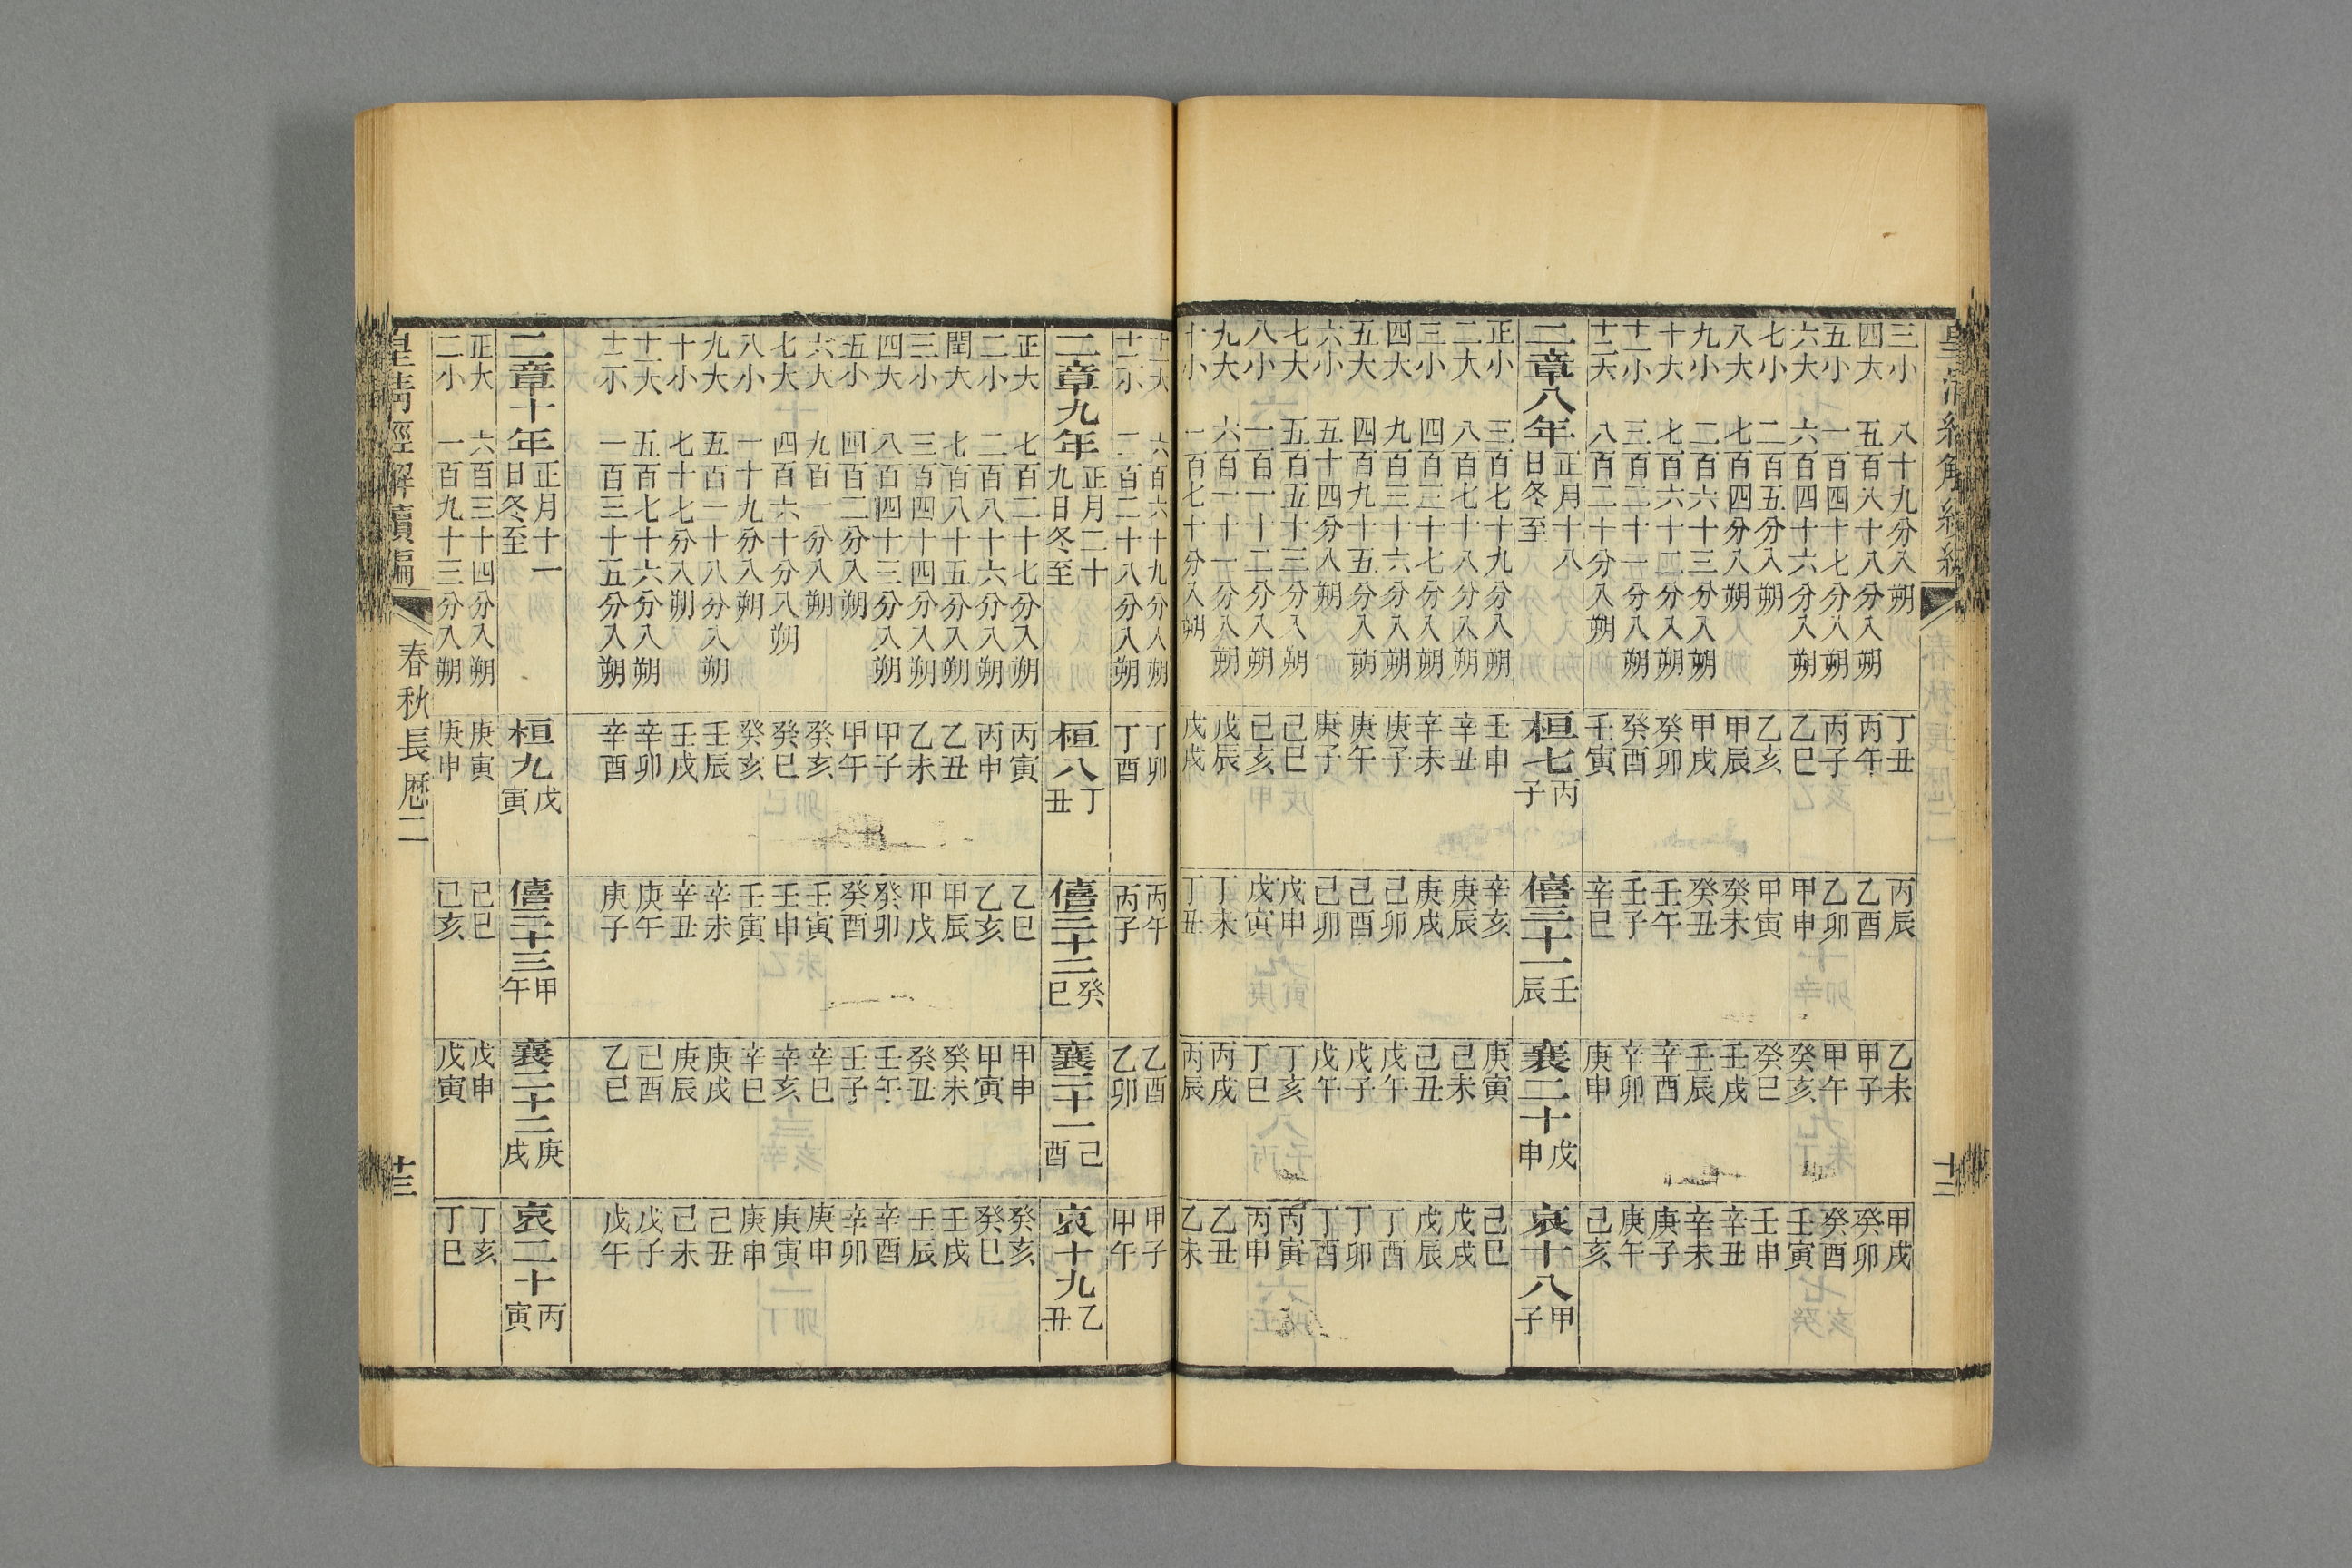 三小 八十九分入朔 丁丑 丙辰 乙未 甲戌
四大 五百八十八分入朔 丙午 乙酉 甲子 癸卯
五小 一百四十七分入朔 丙子 乙卯 甲午 癸酉
六大 六百四十六分入朔 乙巳 甲申 癸亥 壬寅
七小 二百五分入朔 乙亥 甲寅 癸巳 壬申
八大 七百四分入朔 甲辰 癸未 壬戌 辛丑
九小 二百六十三分入朔 甲戌 癸丑 壬辰 辛未
十大 七百六十二分入朔 癸卯 壬午 辛酉 庚子
十一小 三百二十一分入朔 癸酉 壬子 辛卯 庚午
十二大 八百二十分入朔 壬寅 辛巳 庚申 己亥
二章八年 正月十八日冬至 桓七 丙子 僖三十一 壬辰 襄二十 戊申 哀十八 甲子
正小 三百七十九分入朔 壬申 辛亥 庚寅 己巳
二大 八百七十八分入朔 辛丑 庚辰 己未 戊戌
三小 四百三十七分入朔 辛未 庚戌 己丑 戊辰
四大 九百三十六分入朔 庚子 己卯 戊午 丁酉
五大 四百九十五分入朔 庚午 己酉 戊子 丁卯
六小 五十四分入朔 庚子 己卯 戊午 丁酉
七大 五百五十三分入朔 己巳 戊申 丁亥 丙寅
八小 一百一十二分入朔 己亥 戊寅 丁巳 丙申
九大 六百一十一分入朔 戊辰 丁未 丙戌 乙丑
十小 一百七十分入朔 戊戌 丁丑 丙辰 乙未
十一大 六百六十九分入朔 丁卯 丙午 乙酉 甲子
十二小 二百二十八分入朔 丁酉 丙子 乙卯 甲午
二章九年 正月二十九日冬至 桓八 丁丑 僖三十二 癸巳 襄二十一 己酉 哀十九 乙丑
正大 七百二十七分入朔 丙寅 乙巳 甲申 癸亥
二小 二百八十六分入朔 丙申 乙亥 甲寅 癸巳
閏大 七百八十五分入朔 乙丑 甲辰 癸未 壬戌
三小 三百四十四分入朔 乙未 甲戌 癸丑 壬辰
四大 八百四十三分入朔 甲子 癸卯 壬午 辛酉
五小 四百二分入朔 甲午 癸酉 壬子 辛卯
六大 九百一分入朔 癸亥 壬寅 辛巳 庚申
七大 四百六十分入朔 癸巳 壬申 辛亥 庚寅
八小 一十九分入朔 癸亥 壬寅 辛巳 庚申
九大 五百一十八分入朔 壬辰 辛未 庚戌 己丑
十小 七十七分入朔 壬戌 辛丑 庚辰 己未
十一大 五百七十六分入朔 辛卯 庚午 己酉 戊子
十二小 一百三十五分入朔 辛酉 庚子 乙巳 戊午
二章十年 正月十一日冬至 桓九 戊寅 僖三十三 甲午 襄二十二 庚戌 哀二十 丙寅
正大 六百三十四分入朔 庚寅 己巳 戊申 丁亥
二小 一百九十三分入朔 庚申 己亥 戊寅 丁巳
皇清經解續編 春秋長厤二 十三